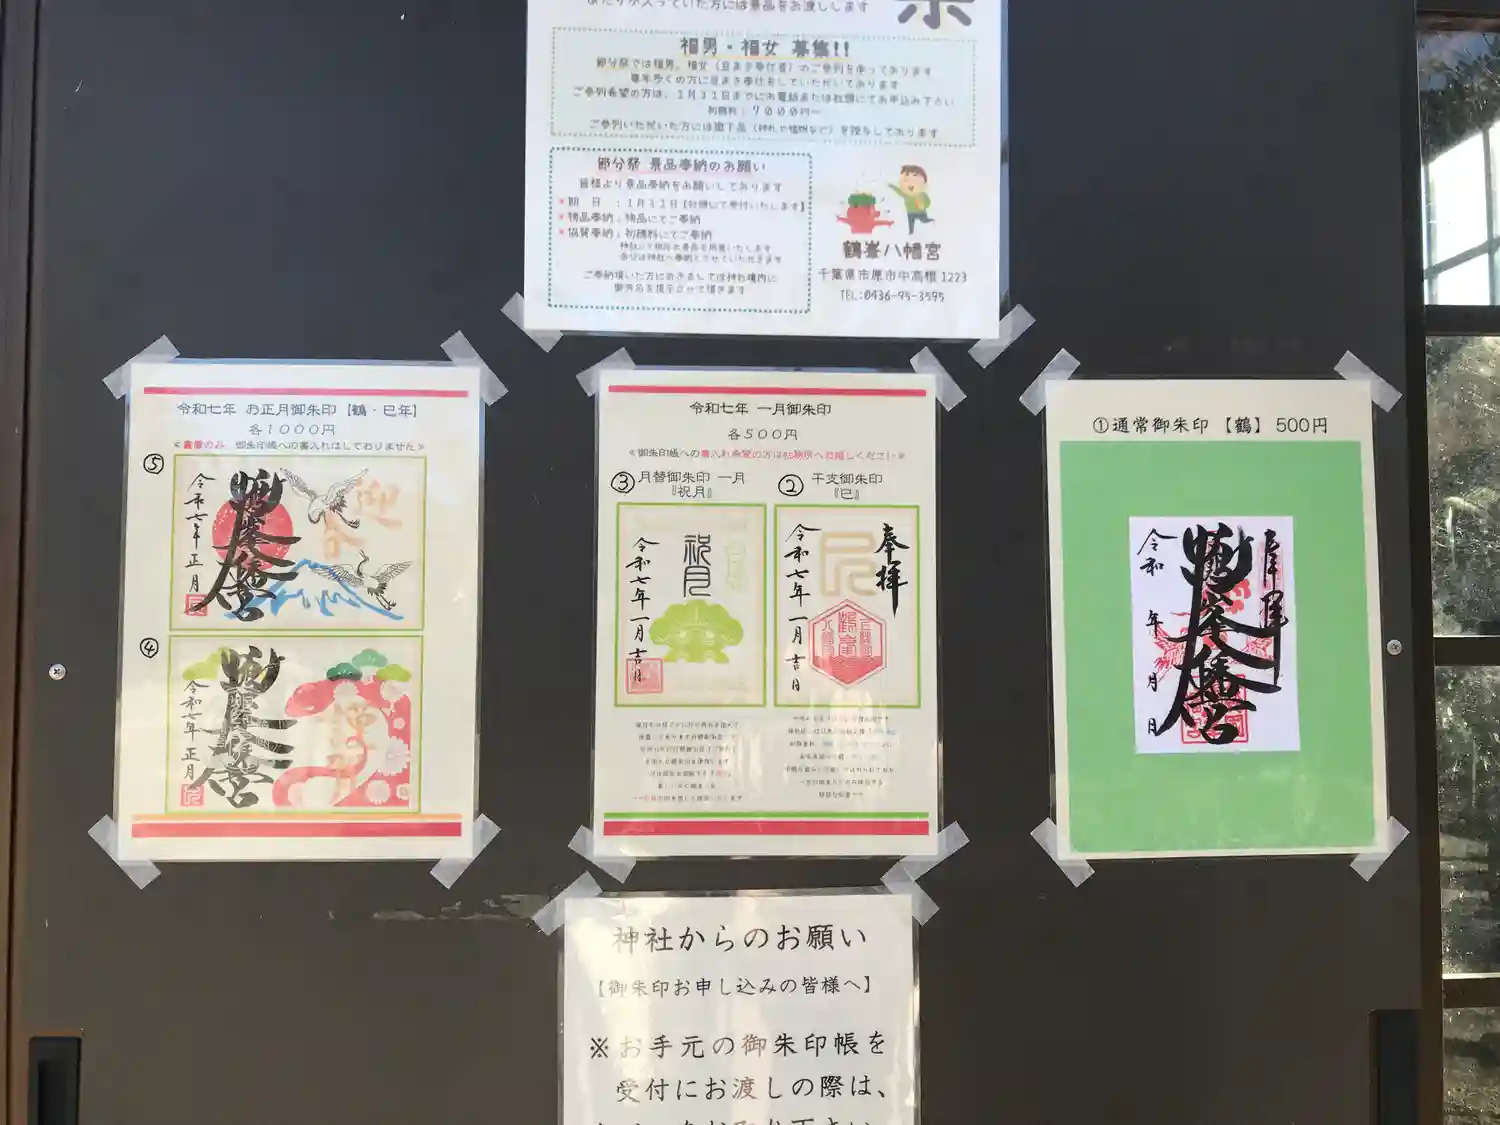 福男・福女 募集!!
節分祭では福男、福女(豆まき奉仕者)のご参列を承っております
毎年多くの方に豆まき奉仕をしていただいております
ご参列希望の方は、1月31日までにお電話または社頭にてお申込み下さい
初穂料:7000円~
ご参列いただいた方には撤下品(神札や福桝など)を授与しております
節分祭 景品奉納のお願い
皆様より景品奉納をお願いしております
*期 日 :1月31日【社頭にて受付いたします】
*物品奉納:物品にてご奉納
*協賛奉納:初穂料にてご奉納
ご奉納頂いた方におきましては神社境内に
御芳名を掲示させて頂きます
鶴峯八幡宮
千葉県市原市中高根1223
TEL:0436-95-3595
令和七年 お正月御朱印【鶴・巳年】
各1000円
≪書置のみ 御朱印帳への書入れはしておりません≫
⑤
迎春
鶴峯八幡宮
令和七年正月
④
鶴峯八幡宮
令和七年正月
令和七年 一月御朱印
各500円
≪御朱印帳への書入れ希望の方は社務所へお越しください≫
③月替御朱印 一月
『祝月』
祝月
令和七年一月吉日
②干支御朱印
『巳』
奉拝
巳
令和七年一月吉日
①通常御朱印【鶴】500円
奉拝
鶴峯八幡宮
令和 年 月 日
神社からのお願い
【御朱印お申し込みの皆様へ】
※お手元の御朱印帳を
受付にお渡しの際は、